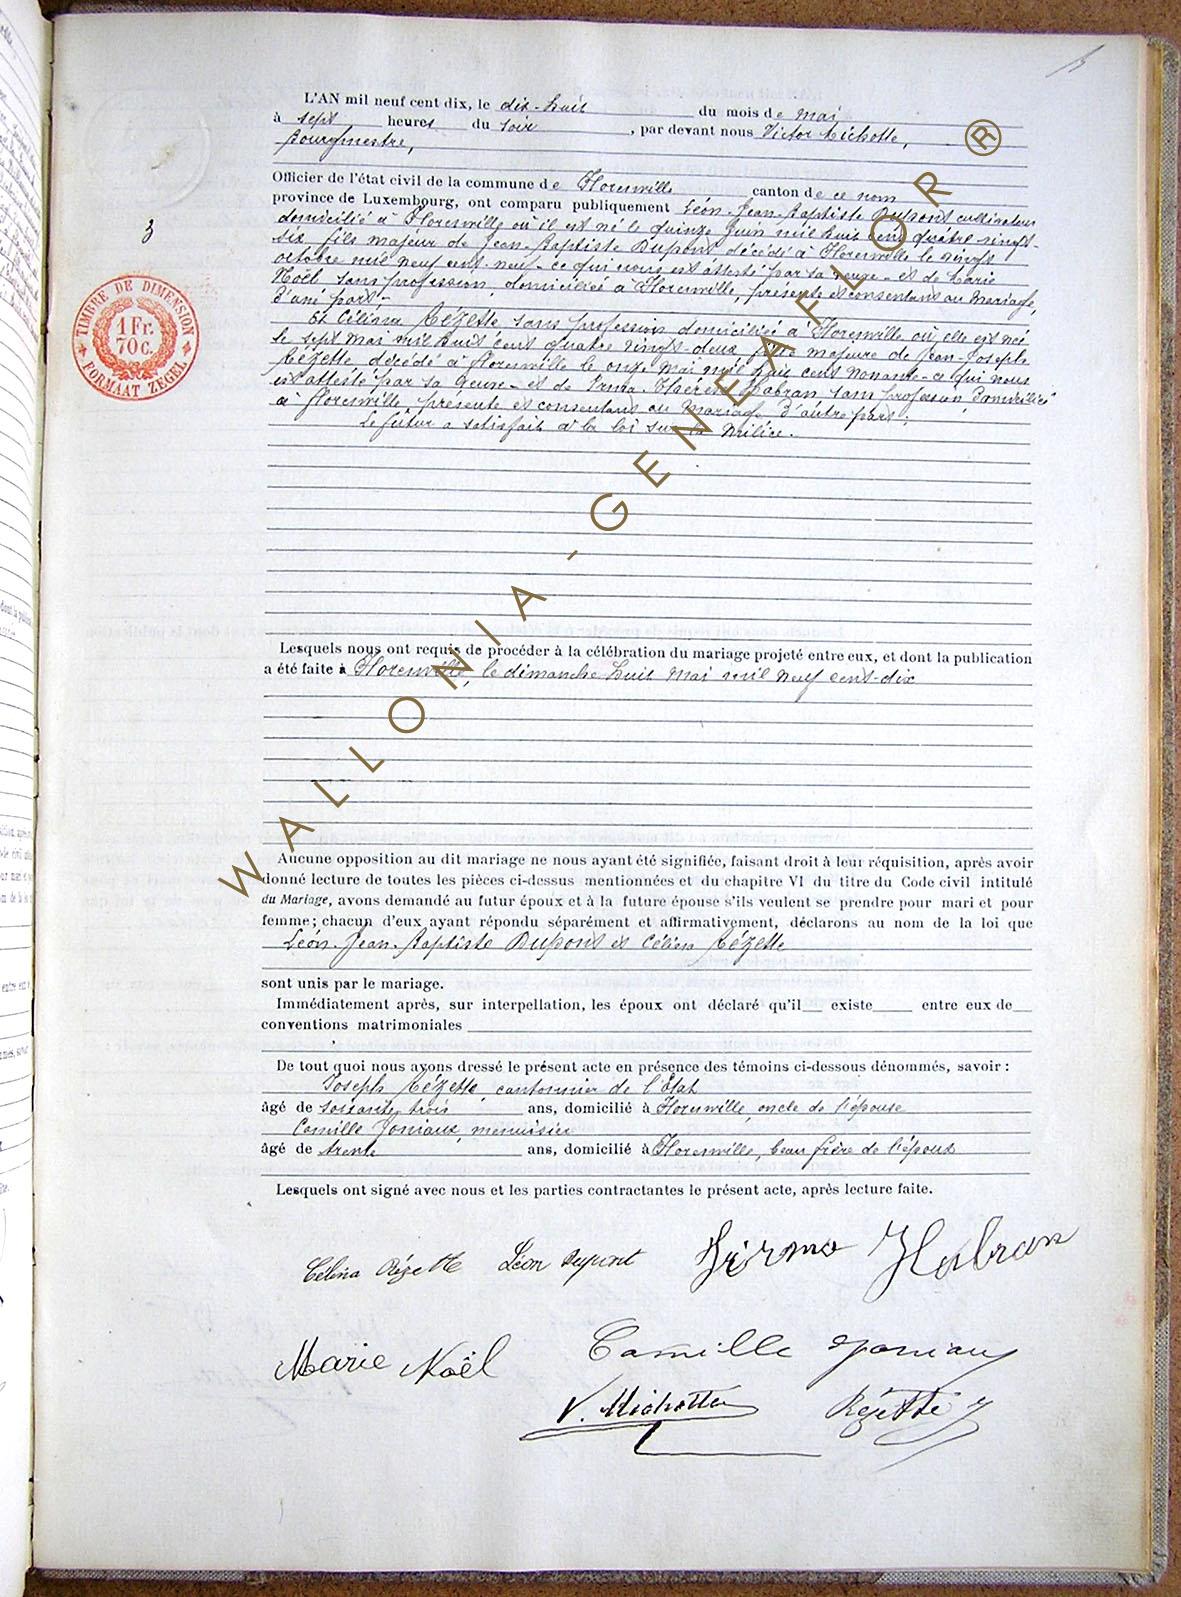 L'AN mil neuf cent dix, le dix-huit du mois de mai
à sept heures du soir, par devant nous Victor Michotte,
Bourgmestre,
Officier de l'état civil de la commune de Florenville canton de ce nom
province de Luxembourg, ont comparu publiquement Léon-Jean-Baptiste Dupont cultivateur
domicilié à Florenville où il est né le quinze Juin mil huit cent quatre vingt-
six, fils majeur de Jean-Baptiste Dupont décédé à Florenville le vingt
octobre mil neuf cent-neuf - ce qui nous est attesté par sa veuve - et de Marie
Noël sans profession, domiciliée à Florenville, présente et consentant au mariage,
d'une part;
Et Célina Rézette sans profession domiciliée à Florenville où elle est née
le sept mai mil huit cent quatre vingt-deux, fille majeure de Jean-Joseph
Rézette décédé à Florenville le onze mai mil huit cent nonante - ce qui nous
est attesté par sa veuve - et de Irma Thérèse Habran, sans profession domiciliée
à Florenville présente et consentant au Mariage d'autre part;
Le futur a satisfait à la loi sur la Milice.
3
TIMBRE DE DIMENSION
1 Fr.
70 c.
FORMAAT ZEGEL
Lesquels nous ont requis de procéder à la célébration du mariage projeté entre eux, et dont la publication
a été faite à Florenville, le dimanche huit mai mil neuf cent-dix
Aucune opposition au dit mariage ne nous ayant été signifiée, faisant droit à leur réquisition, après avoir
donné lecture de toutes les pièces ci-dessus mentionnées et du chapitre VI du titre du Code civil intitulé
du Mariage, avons demandé au futur époux et à la future épouse s'ils veulent se prendre pour mari et pour
femme; chacun d'eux ayant répondu séparément et affirmativement, déclarons au nom de la loi que
Léon-Jean-Baptiste Dupont et Célina Rézette
sont unis par le mariage.
Immédiatement après, sur interpellation, les époux ont déclaré qu'il existe entre eux de
conventions matrimoniales
De tout quoi nous avons dressé le présent acte en présence des témoins ci-dessous dénommés, savoir :
Joseph Rézette, cantonnier de l'Etat
âgé de soixante trois ans, domicilié à Florenville, oncle de l'épouse
Camille Joniaux, menuisier
âgé de trente ans, domicilié à Florenville, beau frère de l'époux
Lesquels ont signé avec nous et les parties contractantes le présent acte, après lecture faite.
Célina Rézette Léon Dupont Irma Habran
Marie Noël Camille Joniaux
V. Michotte Rézette J
WALLONIA - GENEAFLOR ®